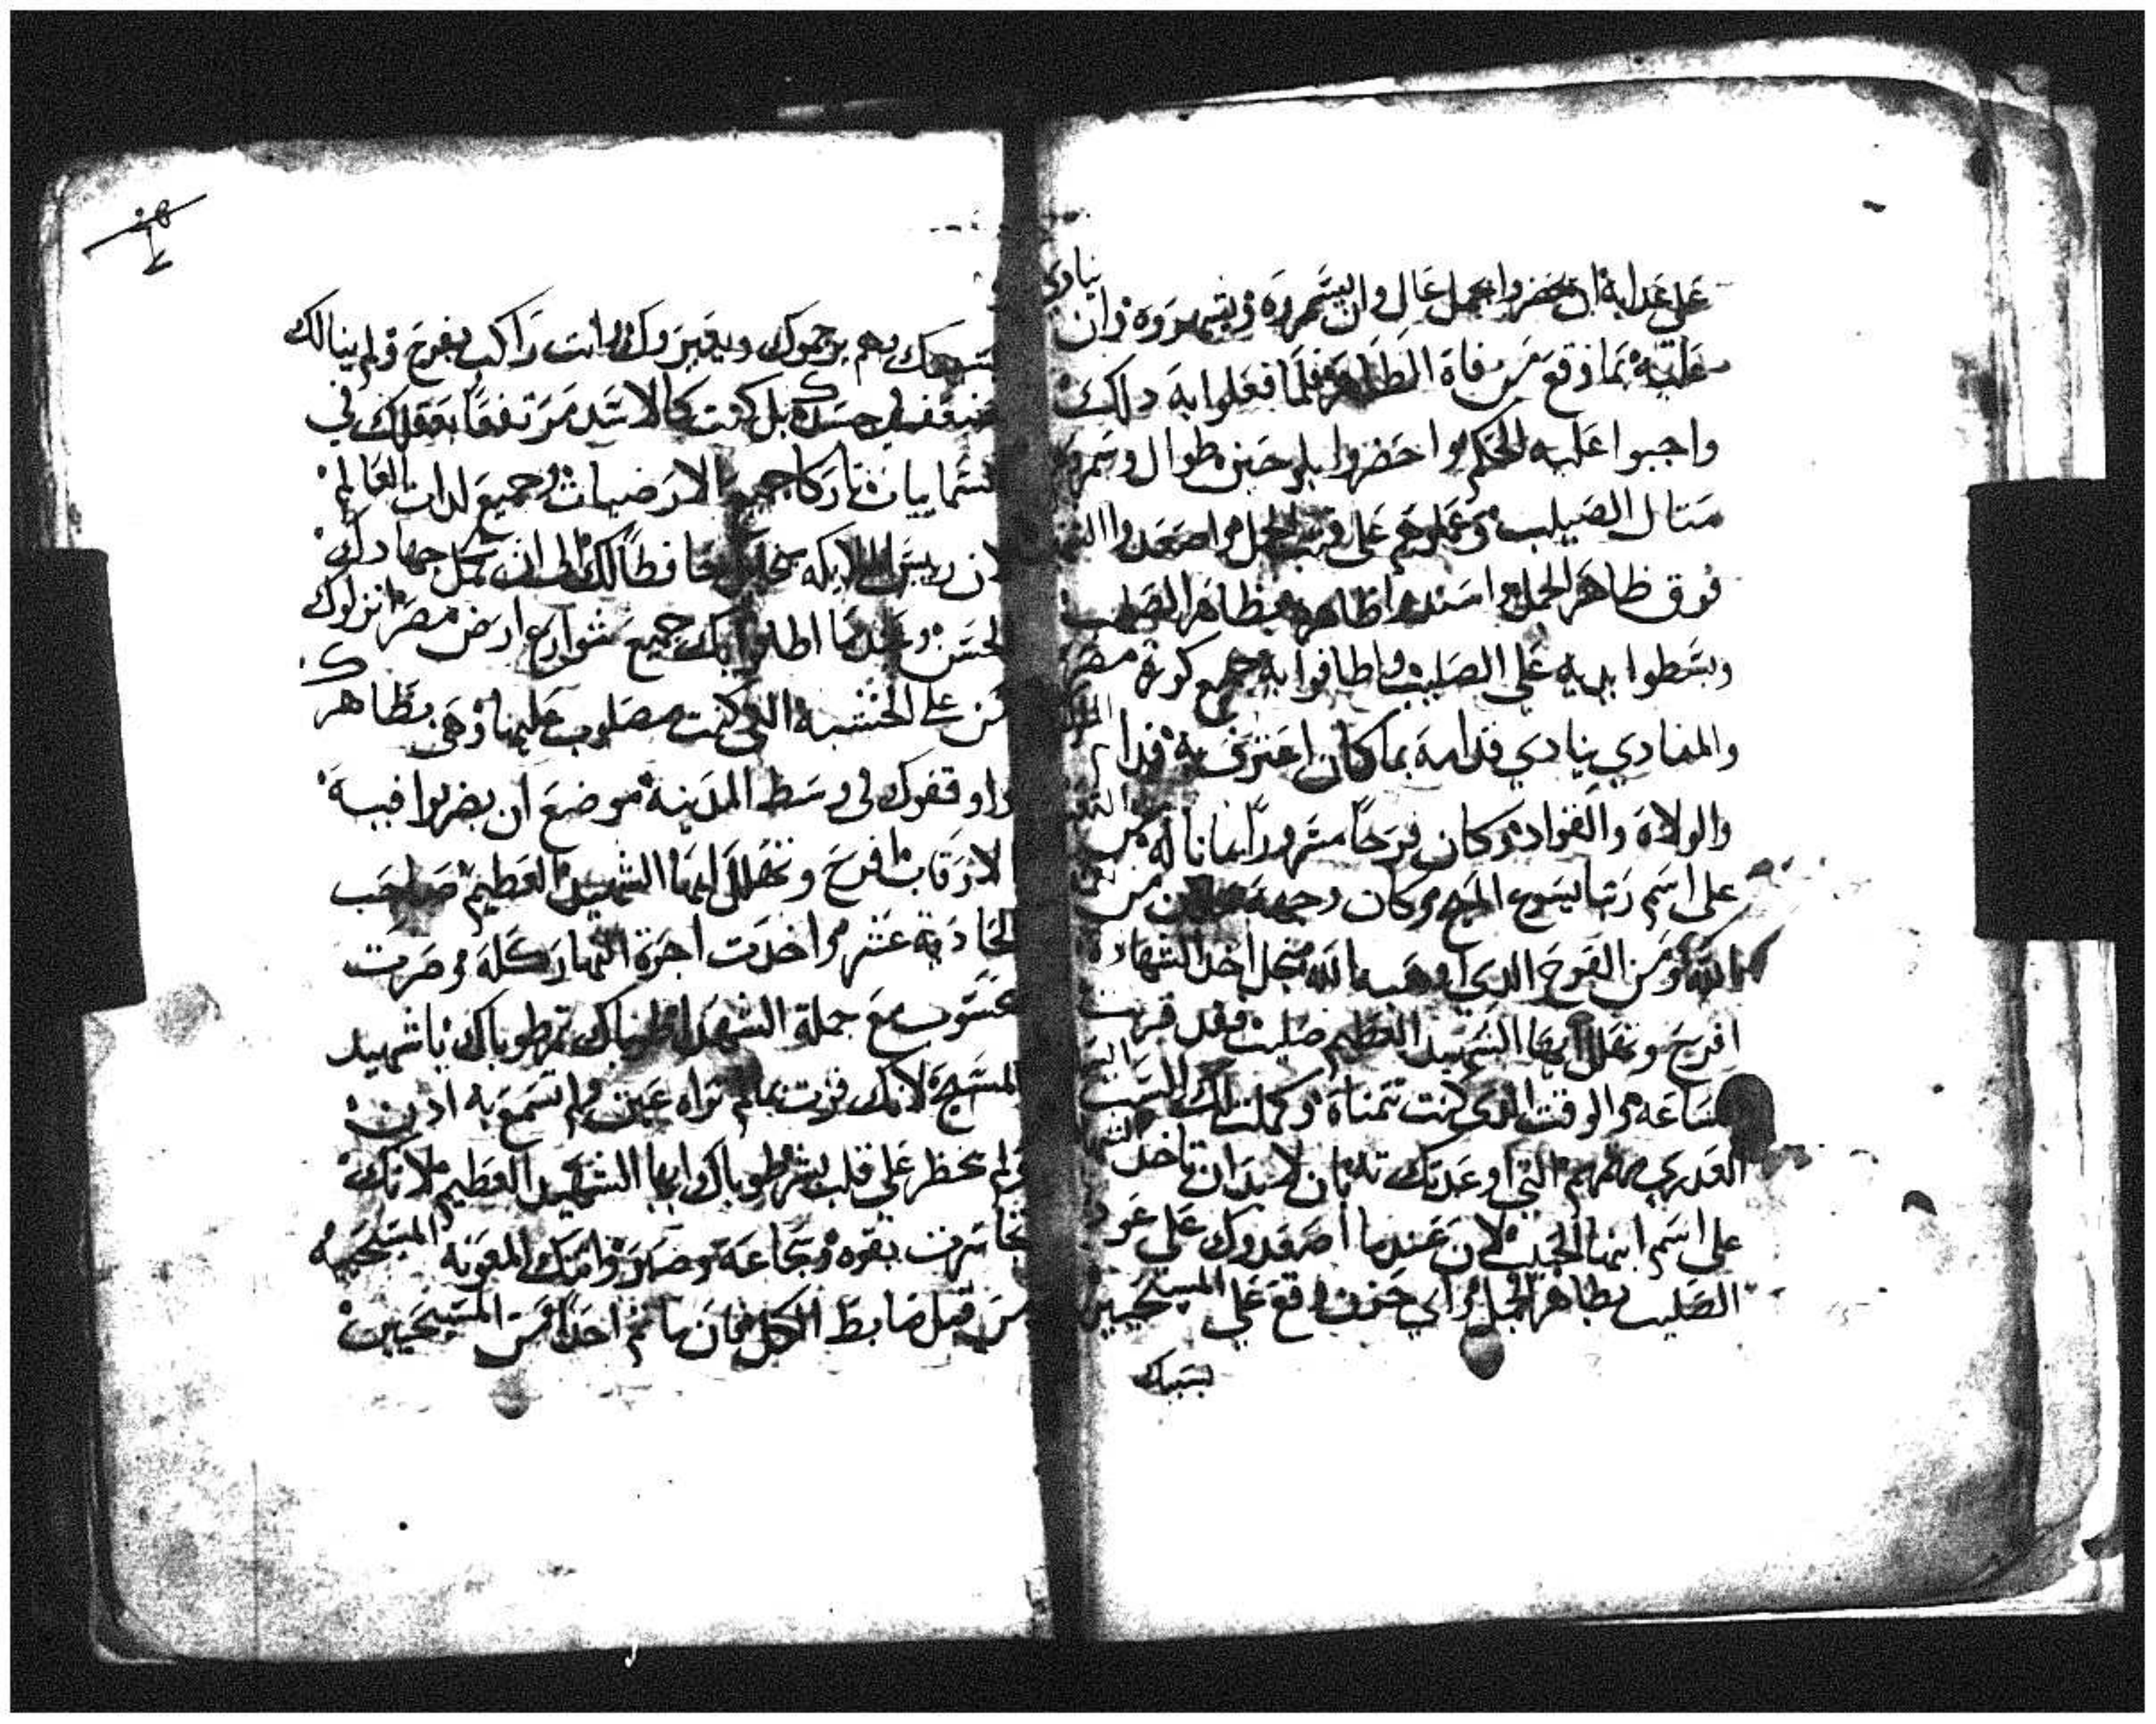 على عدابه ان يحضروا بجمل عال وان يسمروه ويشهروه وان ينادي
عليه بما وقع من فاه الطاهر فلما فعلوا به دلك
واجبوا عليه الحكم واحضروا طوال وسمروه
متال الصيلب وعلوهم على قتب الجمل واصعدوا
فوق ظاهر الجمل واسندوا ظاهره بظاهر الصليب
وبسطوا يديه على الصليب واطافوا به جميع كورة مصر
والمنادي ينادي قدامه بما كان اعترف به قدام
والولاة والقواد وكان فرحًا مسرورًا بما ناله من
على اسم ربنا يسوع المسيح وكان وجهه من
الله ومن الفرح الدي اوهبه الله من اجل اخد الشهادة
افرح وتهلل ايها الشهيد العظيم صليب فقد قربت
الساعه والوقت الدي كنت تتمناه وكملت لك الست
العدري مريم التي اوعدتك به بان لابد ان تاخد
على اسم ابنها الحبيب لان عندما اصعدوك على عود
الصليب بظاهر الجمل واي حزن وقع على المسيحيين
بسببك
وهم يرجموك ويعيروك وانت راكب بفرح ولم ينالك
ضعف في جسدك بل كنت كالاسد مرتفقًا بعقلك في
السماييات تاركًا جميع الارضيات وجميع لدات العالم
لان ريس الملايكه ميخاييل حافظًا لك الى ان تكمل جهادك
الحسن وعندما اطافوا بك جميع شوارع ارض مصر انزلوك
من على الخشبه التي كنت مصلوب عليها وهى بظاهرك
واوقفوك في وسط المدينة موضع ان يضربوا فيه
الارقاب افرح وتهلل ايها الشهيد العظيم صاحب
الحادية عشر واخدت اجرة النهار كله وصرت
محسوب مع جملة الشهدا طوباك تم طوباك يا شهيد
المسيح لانك فزت بما لم تراه عين ولم تسمع به ادن
ولم يخطر على قلب بشر طوباك ايها الشهيد العظيم لانك
تجاسرت بقوه وشجاعة وصبر واتتك المعونه المسيحيه
من قبل ضابط الكل فان ما تم احدًا من المسيحيين